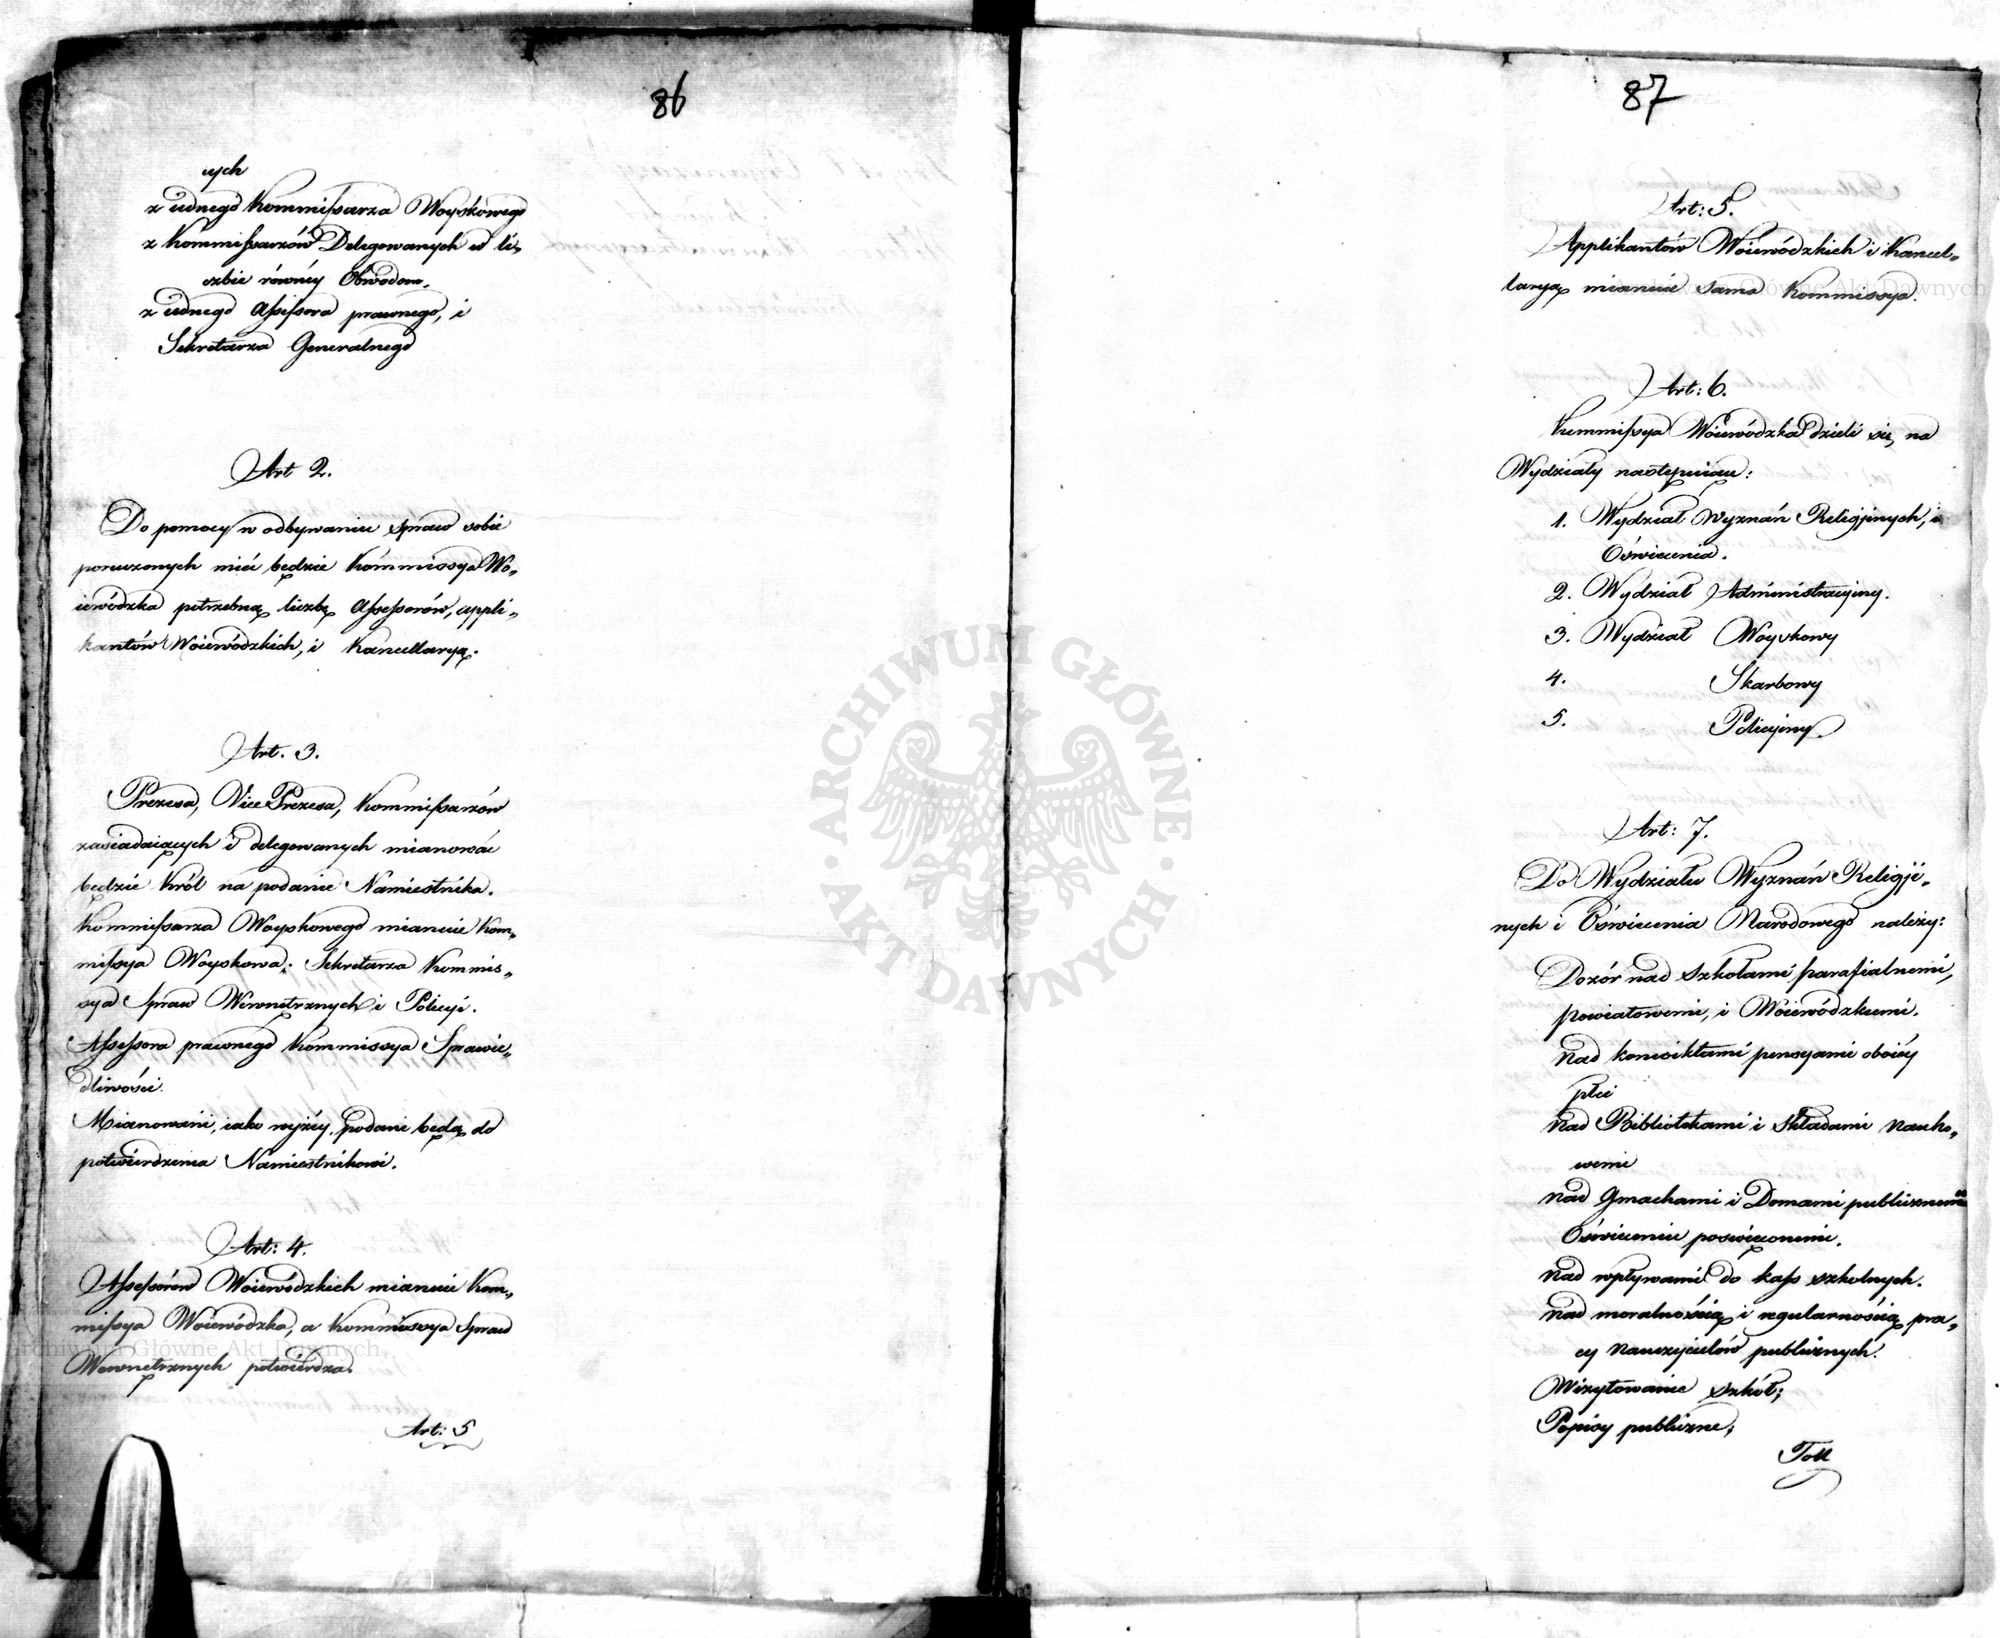 86
ych
z iednego Kommissarza Woyskowego
z Kommissarzów Delegowanych w li„
czbie równéy Obwodom.
z iednego Assessora prawnego, i
Sekretarza Generalnego
Art 2.
Do pomocy w odbywaniu spraw sobie
poruczonych mieć będzie Kommissya Wo„
iewódzka potrzebną liczbę Assessorów, appli„
kantów Woiewódzkich, i Kancellaryą.
Art. 3.
Prezesa, Vice Prezesa, Kommissarzów
zasiadaiących i delegowanych mianować
będzie Król na podanie Namiestnika.
Kommissarza Woyskowego mianuie Kom„
missya Woyskowa; Sekretarza Kommis„
sya Spraw Wewnętrznych i Policyi.
Assessora prawnego Kommissya Sprawie„
dliwości.
Mianowani, iako wyżéy, podani będą do
potwierdzenia Namiestnikowi.
Art: 4.
Assessorów Woiewódzkich mianuie Kom„
missya Woiewódzka, a Kommissya Spraw
Wewnętrznych potwierdza.
Art: 5
87
Art: 5.
Applikantów Woiewódzkich i Kancel„
laryą mianuie sama Kommissya.
Art: 6.
Kommissya Woiewódzka dzieli się na
Wydziały następuiące:
1. Wydział Wyznań Religijnych, i
Oświecenia.
2. Wydział Administracyiny.
3. Wydział Woyskowy
4. Skarbowy
5. Policyiny.
Art: 7.
Do Wydziału Wyznań Religji„
nych i Oświecenia Narodowego należy:
Dozór nad szkołami parafialnemi,
powiatowemi, i Woiewódzkiemi.
nad konwiktami pensyami oboiéy
płci
nad Bibliotekami i Składami nauko„
wemi
nad Gmachami i Domami publicznemi
Oświeceniu poświęconemi.
nad wpływami do kass szkolnych.
nad moralnością i regularnością pra„
cy nauczycielów publicznych.
Wizytowanie szkół;
Popisy publiczne;
ARCHIWUM GŁÓWNE
AKT DAWNYCH
Archiwum Główne Akt Dawnych
Archiwum Główne Akt Dawnych